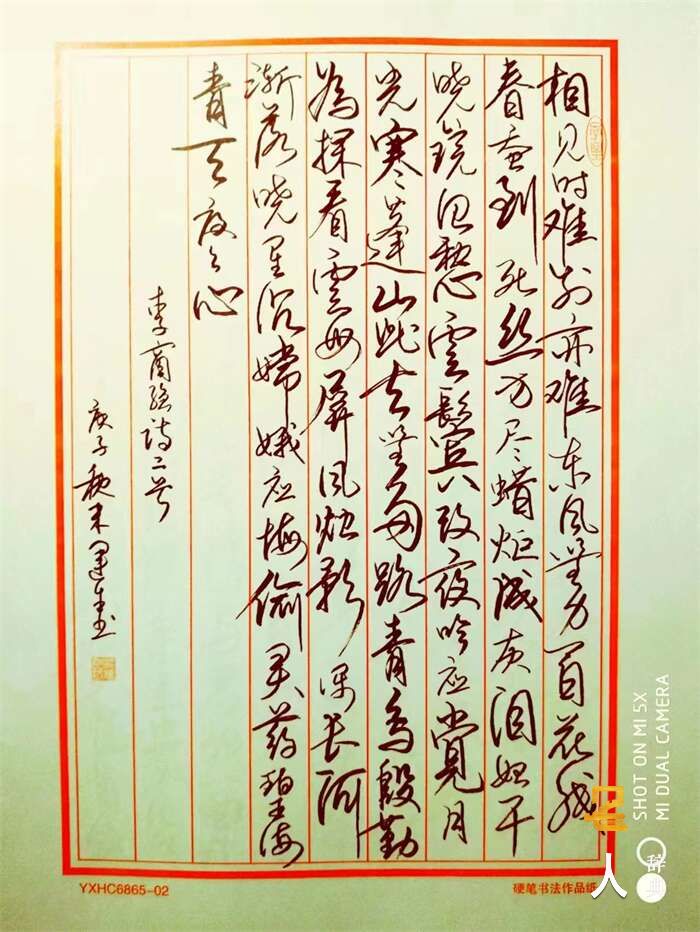 相见时难别亦难东风無力百花残
春蚕到死丝方尽蜡炬成灰泪始干
晓镜但愁雲鬓改夜吟应觉月
光寒蓬山此去無多路青鸟殷勤
為探看雲母屏风烛影深长河
渐落晓星沉嫦娥应悔偷灵药碧海
青天夜夜心
李商隐诗二首
庚子秋末
YXHC6865-02
硬笔书法作品纸
SHOT ON MI 5X
MI DUAL CAMERA
辞典
人